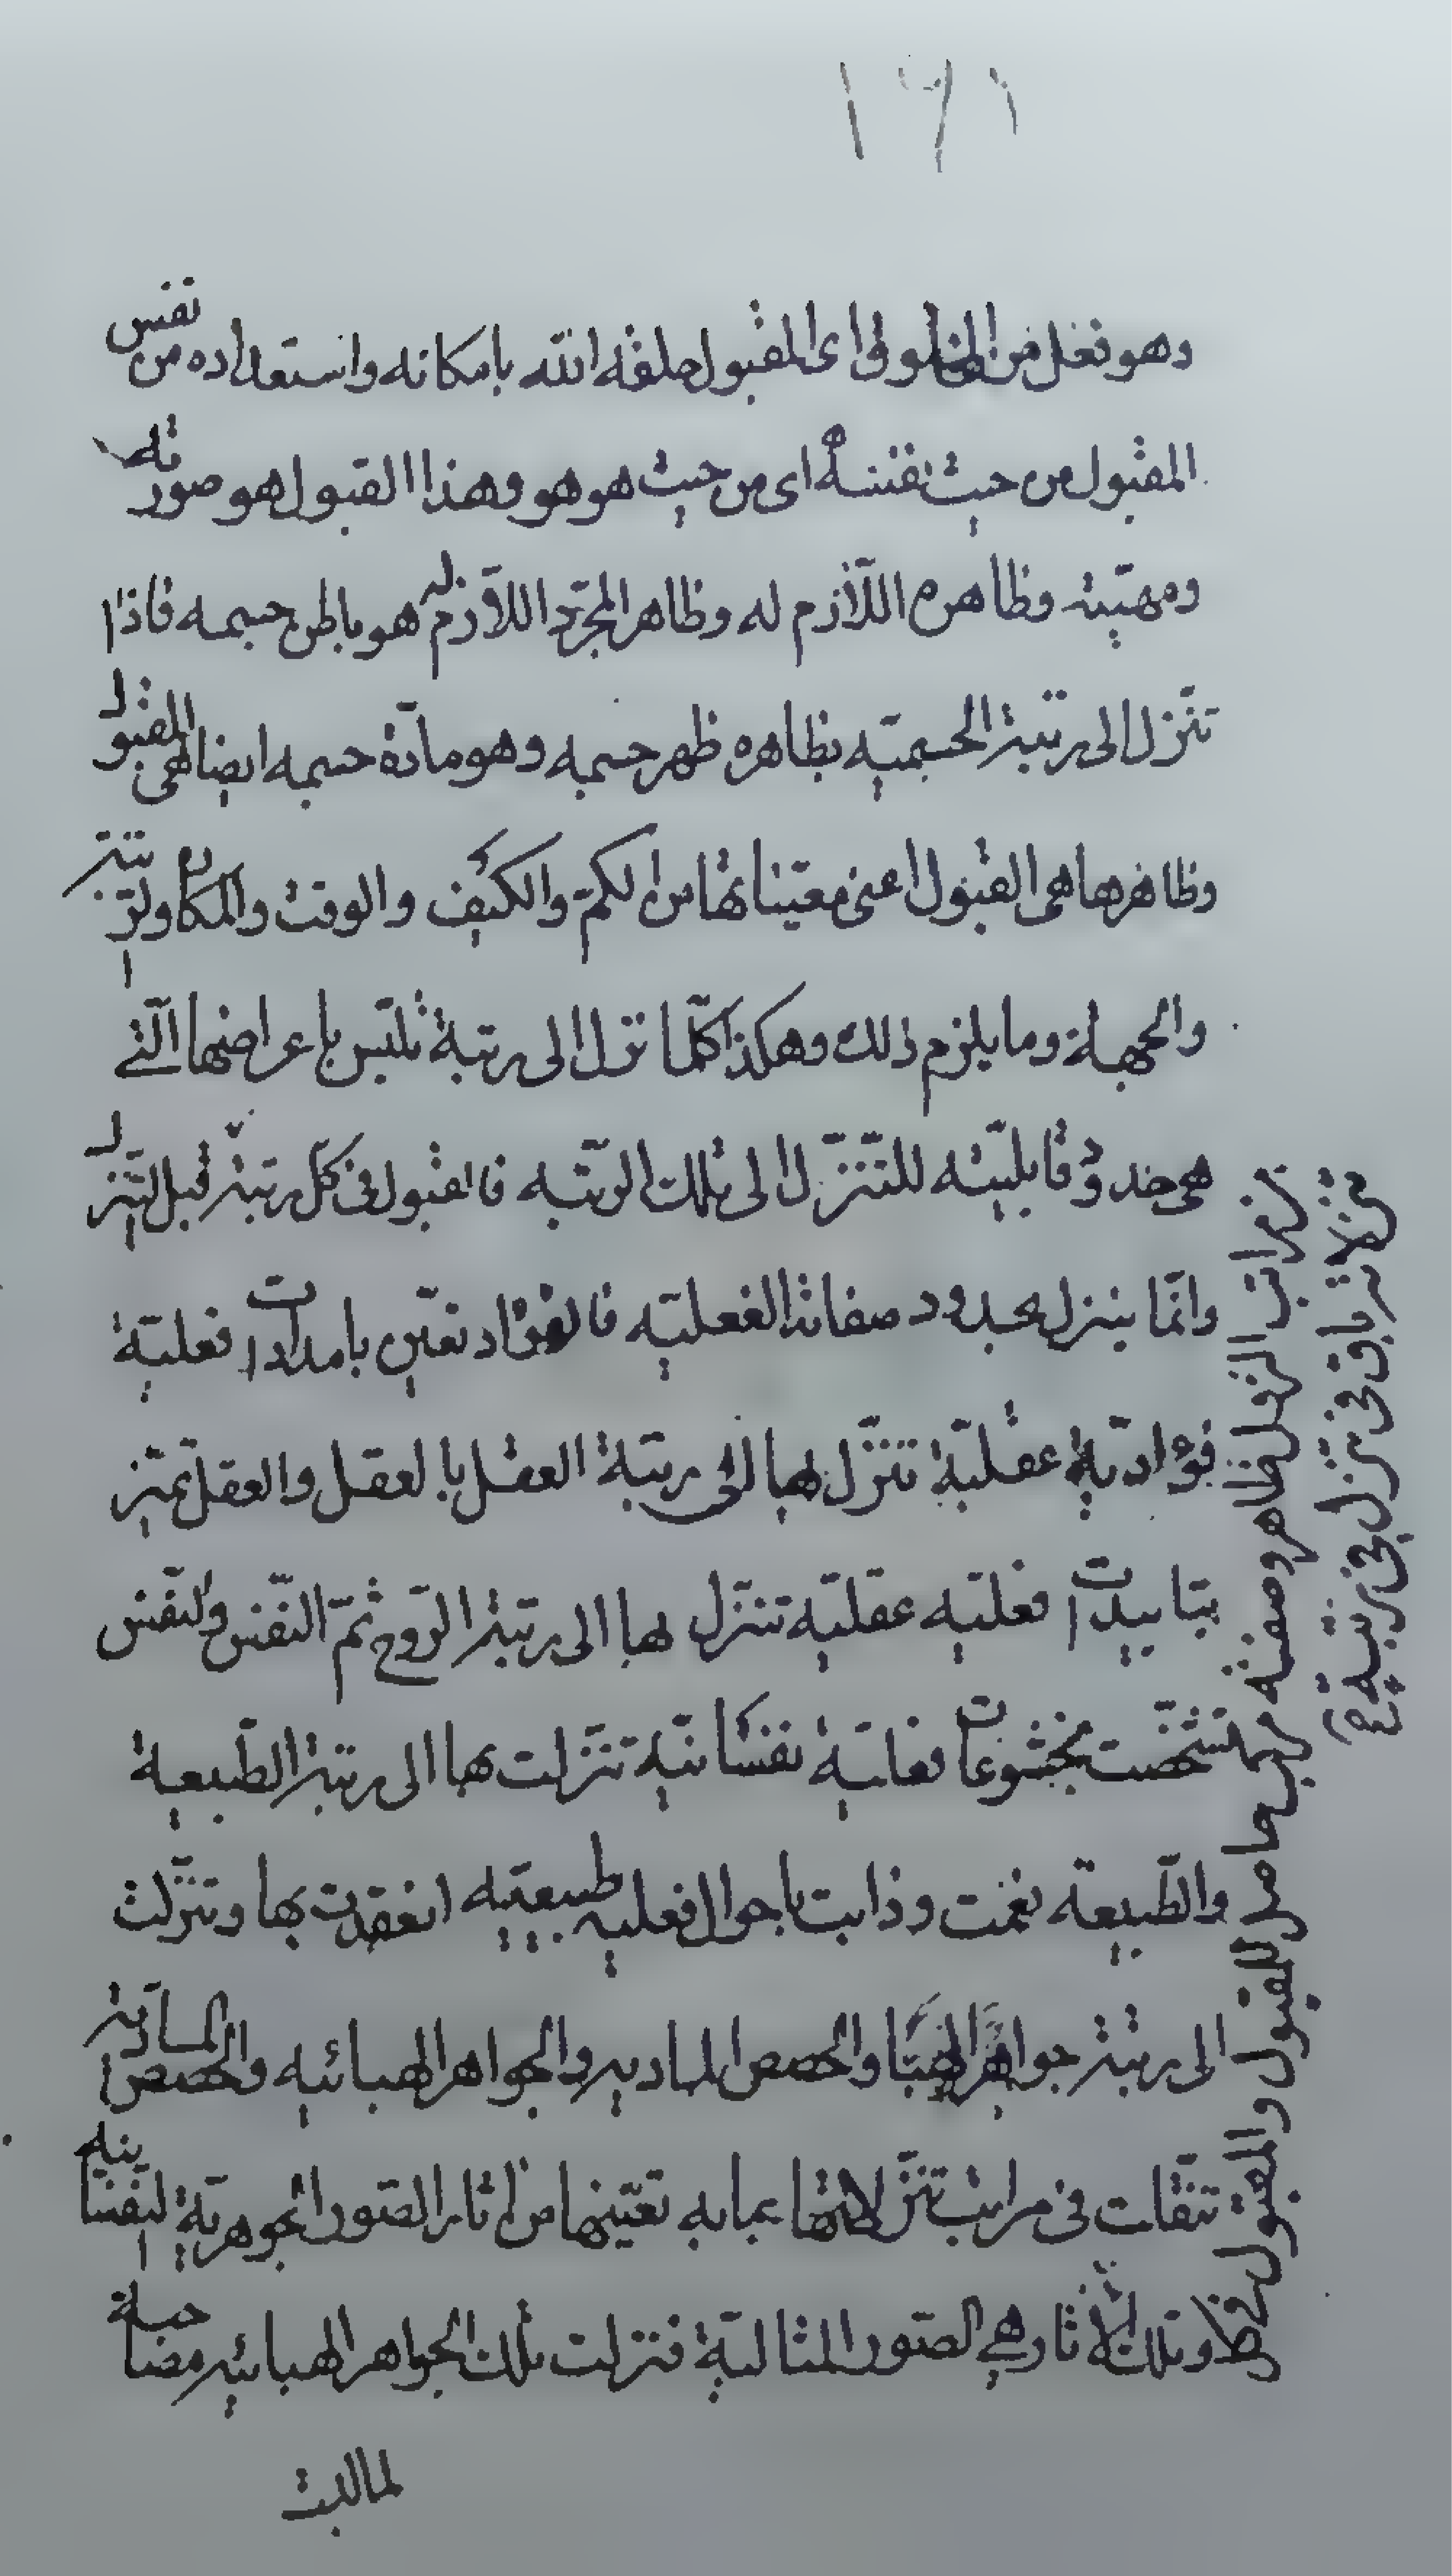 ١٩١
وهو تفعل من المخلوق اى المقبول خلقه الله بامكانه واستعداده من نفس
المقبول من حيث نفسه اى من حيث هو هو وهذا القبول هو صورته
ومهيّته وظاهره اللّازم له وظاهر المجرّد اللّازم له هو باطن جسمه فاذا
تنزّل الى رتبة الجسميّه بظاهره ظهر جسمه وهو مادّة جسمه ايضا هى المقبول
وظاهرها هى القبول اعنى معيّناتها من الكمّ والكيف والوقت والمكان والرّتبة
والجهة وما يلزم ذلك وهكذا كلّما نزل الى رتبة تلبّس باعراضها الّتى
هى حدود قابليّته للتنزّل الى تلك الرّتبه فالقبول فى كلّ رتبة قبل التّنزل
وانّما ينزل بحدود صفاته الفعليّه فالفؤاد تعيّن بامدادات فعليّة
فؤاديّة عقليّة تنزّل بها الى رتبة العقل بالعقل والعقل تميّز
بتاييدات فعليّه عقليّه تنزّل بها الى رتبة الرّوح ثمّ النّفس والنّفس
تشخّصت بخشوعات فعليّة نفسانيّه تنزّلت بها الى رتبة الطّبيعة
والطّبيعة نعمت وذابت باحوال فعليه طبيعيّه انعقدت بها وتنزّلت
الى رتبة جواهر الهباء والحصص الماديه والجواهر الهبائيه والحصص المادّية
تنقّلت فى مراتب تنزّلاتها بما به تعيّنها من اثار الصّور الجوهريّة النفسانيه
وتلك الاثار هى الصّور المثاليّة فتنزلت تلك الجواهر الهبائيه مصاحبة
لما لبث
مراتب النزول ظاهر وصفته مركب حاصل القبول والمقبول فى كل
تنزلا
فى تنزل فى رتبة